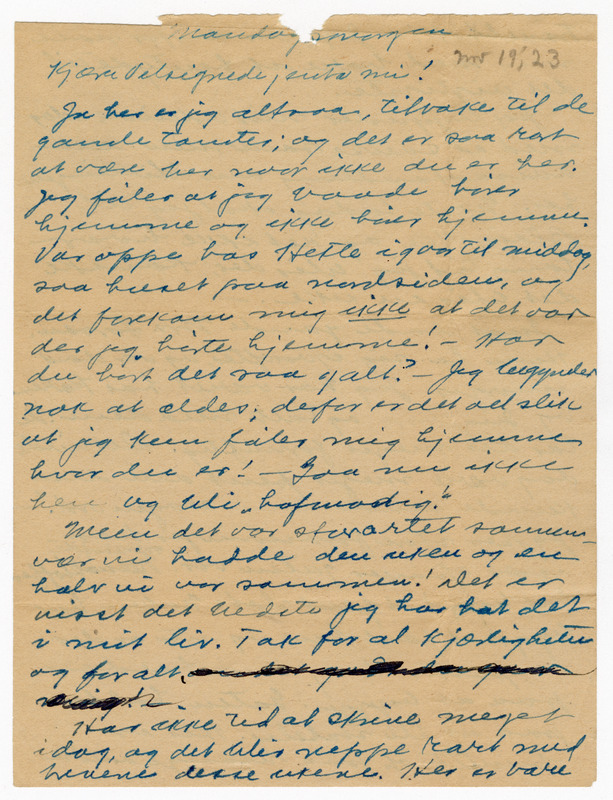 Mandagmorgen
nov 19, 23
Kjære Velsignede jenta mi!
Ja her er jeg altsaa, tilbake til de
gamle tomter; og det er saa rart
at være her naar ikke du er her.
Jeg føler at jeg baade hører
hjemme og ikke hører hjemme.
Var oppe hos Hetle igaar til middag,
saa huset paa nordsiden, og
det forekom mig ikke at det var
der jeg hørte hjemme! - Har
du hørt det saa galt? - Jeg begynder
nok at ældes; derfor er det vel slik
at jeg kun føler mig hjemme
hvor du er! - Gaa nu ikke
hen og bli "hofmodig!"
Men det var storartet sammen-
vær vi hadde den uken og en
halv vi var sammen! Det er
visst det bedste jeg har hat det
i mit liv. Tak for al kjærligheten
og for alt,
Har ikke tid at skrive meget
idag, og det blir neppe rart med
brevene desse ukene. Her er bare